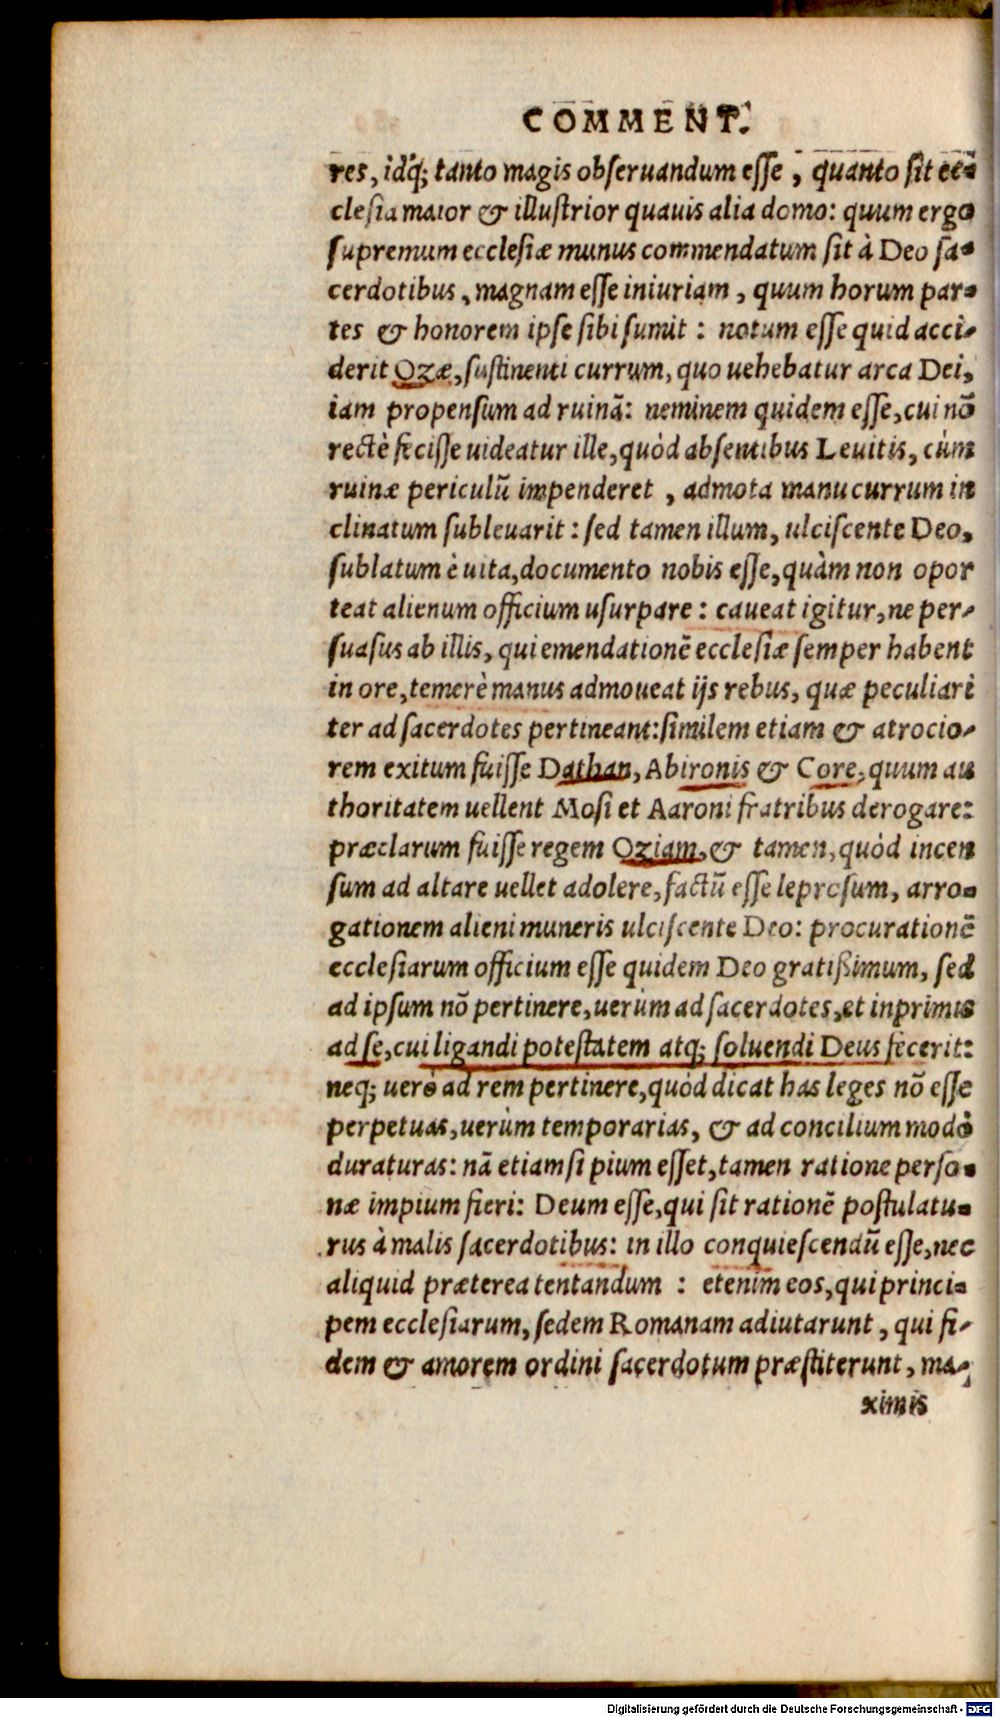 COMMENT.
res, idq́; tanto magis obseruandum esse, quanto sit ec-
clesia maior & illustrior quauis alia domo: quum ergo
supremum ecclesiæ munus commendatum sit à Deo sa-
cerdotibus, magnam esse iniuriam, quum horum par-
tes & honorem ipse sibi sumit: notum esse quid acci-
derit Ozæ, sustinenti currum, quo uehebatur arca Dei,
iam propensum ad ruinā: neminem quidem esse, cui nō
rectè fecisse uideatur ille, quòd absentibus Leuitis, cùm
ruinæ periculū impenderet, admota manu currum in
clinatum subleuarit: sed tamen illum, ulciscente Deo,
sublatum è uita, documento nobis esse, quàm non opor
teat alienum officium usurpare: caueat igitur, ne per-
suasus ab illis, qui emendationē ecclesiæ semper habent
in ore, temerè manus admoueat ijs rebus, quæ peculiari
ter ad sacerdotes pertineant: similem etiam & atrocio-
rem exitum fuisse Dathan, Abironis & Core, quum au
thoritatem uellent Mosi et Aaroni fratribus derogare:
præclarum fuisse regem Oziam, & tamen, quòd incen
sum ad altare uellet adolere, factū esse leprosum, arro-
gationem alieni muneris ulciscente Deo: procurationē
ecclesiarum officium esse quidem Deo gratißimum, sed
ad ipsum nō pertinere, uerùm ad sacerdotes, et inprimis
ad se, cui ligandi potestatem atq; soluendi Deus fecerit:
neq; uerò ad rem pertinere, quòd dicat has leges nō esse
perpetuas, uerùm temporarias, & ad concilium modò
duraturas: nā etiam si pium esset, tamen ratione perso-
næ impium fieri: Deum esse, qui sit rationē postulatu-
rus à malis sacerdotibus: in illo conquiescendū esse, nec
aliquid præterea tentandum: etenim eos, qui princi-
pem ecclesiarum, sedem Romanam adiutarunt, qui fi-
dem & amorem ordini sacerdotum præstiterunt, ma-
ximis
Digitalisierung gefördert durch die Deutsche Forschungsgemeinschaft - DFG